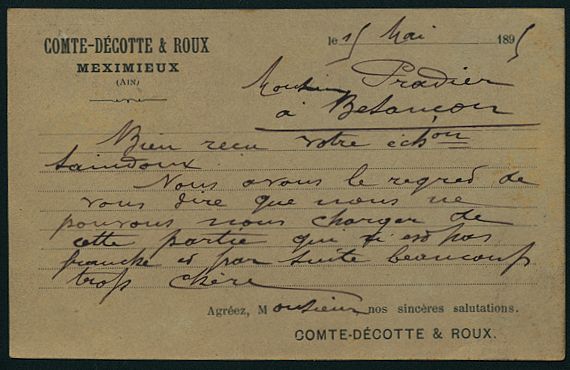 COMTE-DÉCOTTE & ROUX
MEXIMIEUX
(AIN)
le 15 Mai 1895
Monsieur Pradier
à Besançon
Bien recu votre échon
saindoux
Nous avons le regred de
vous dire que nous ne
pouvons nous charger de
cette partie qui n'est pas
franche et par suite beaucoup
trop chère
Agréez, Monsieur nos sincères salutations.
COMTE-DÉCOTTE & ROUX.